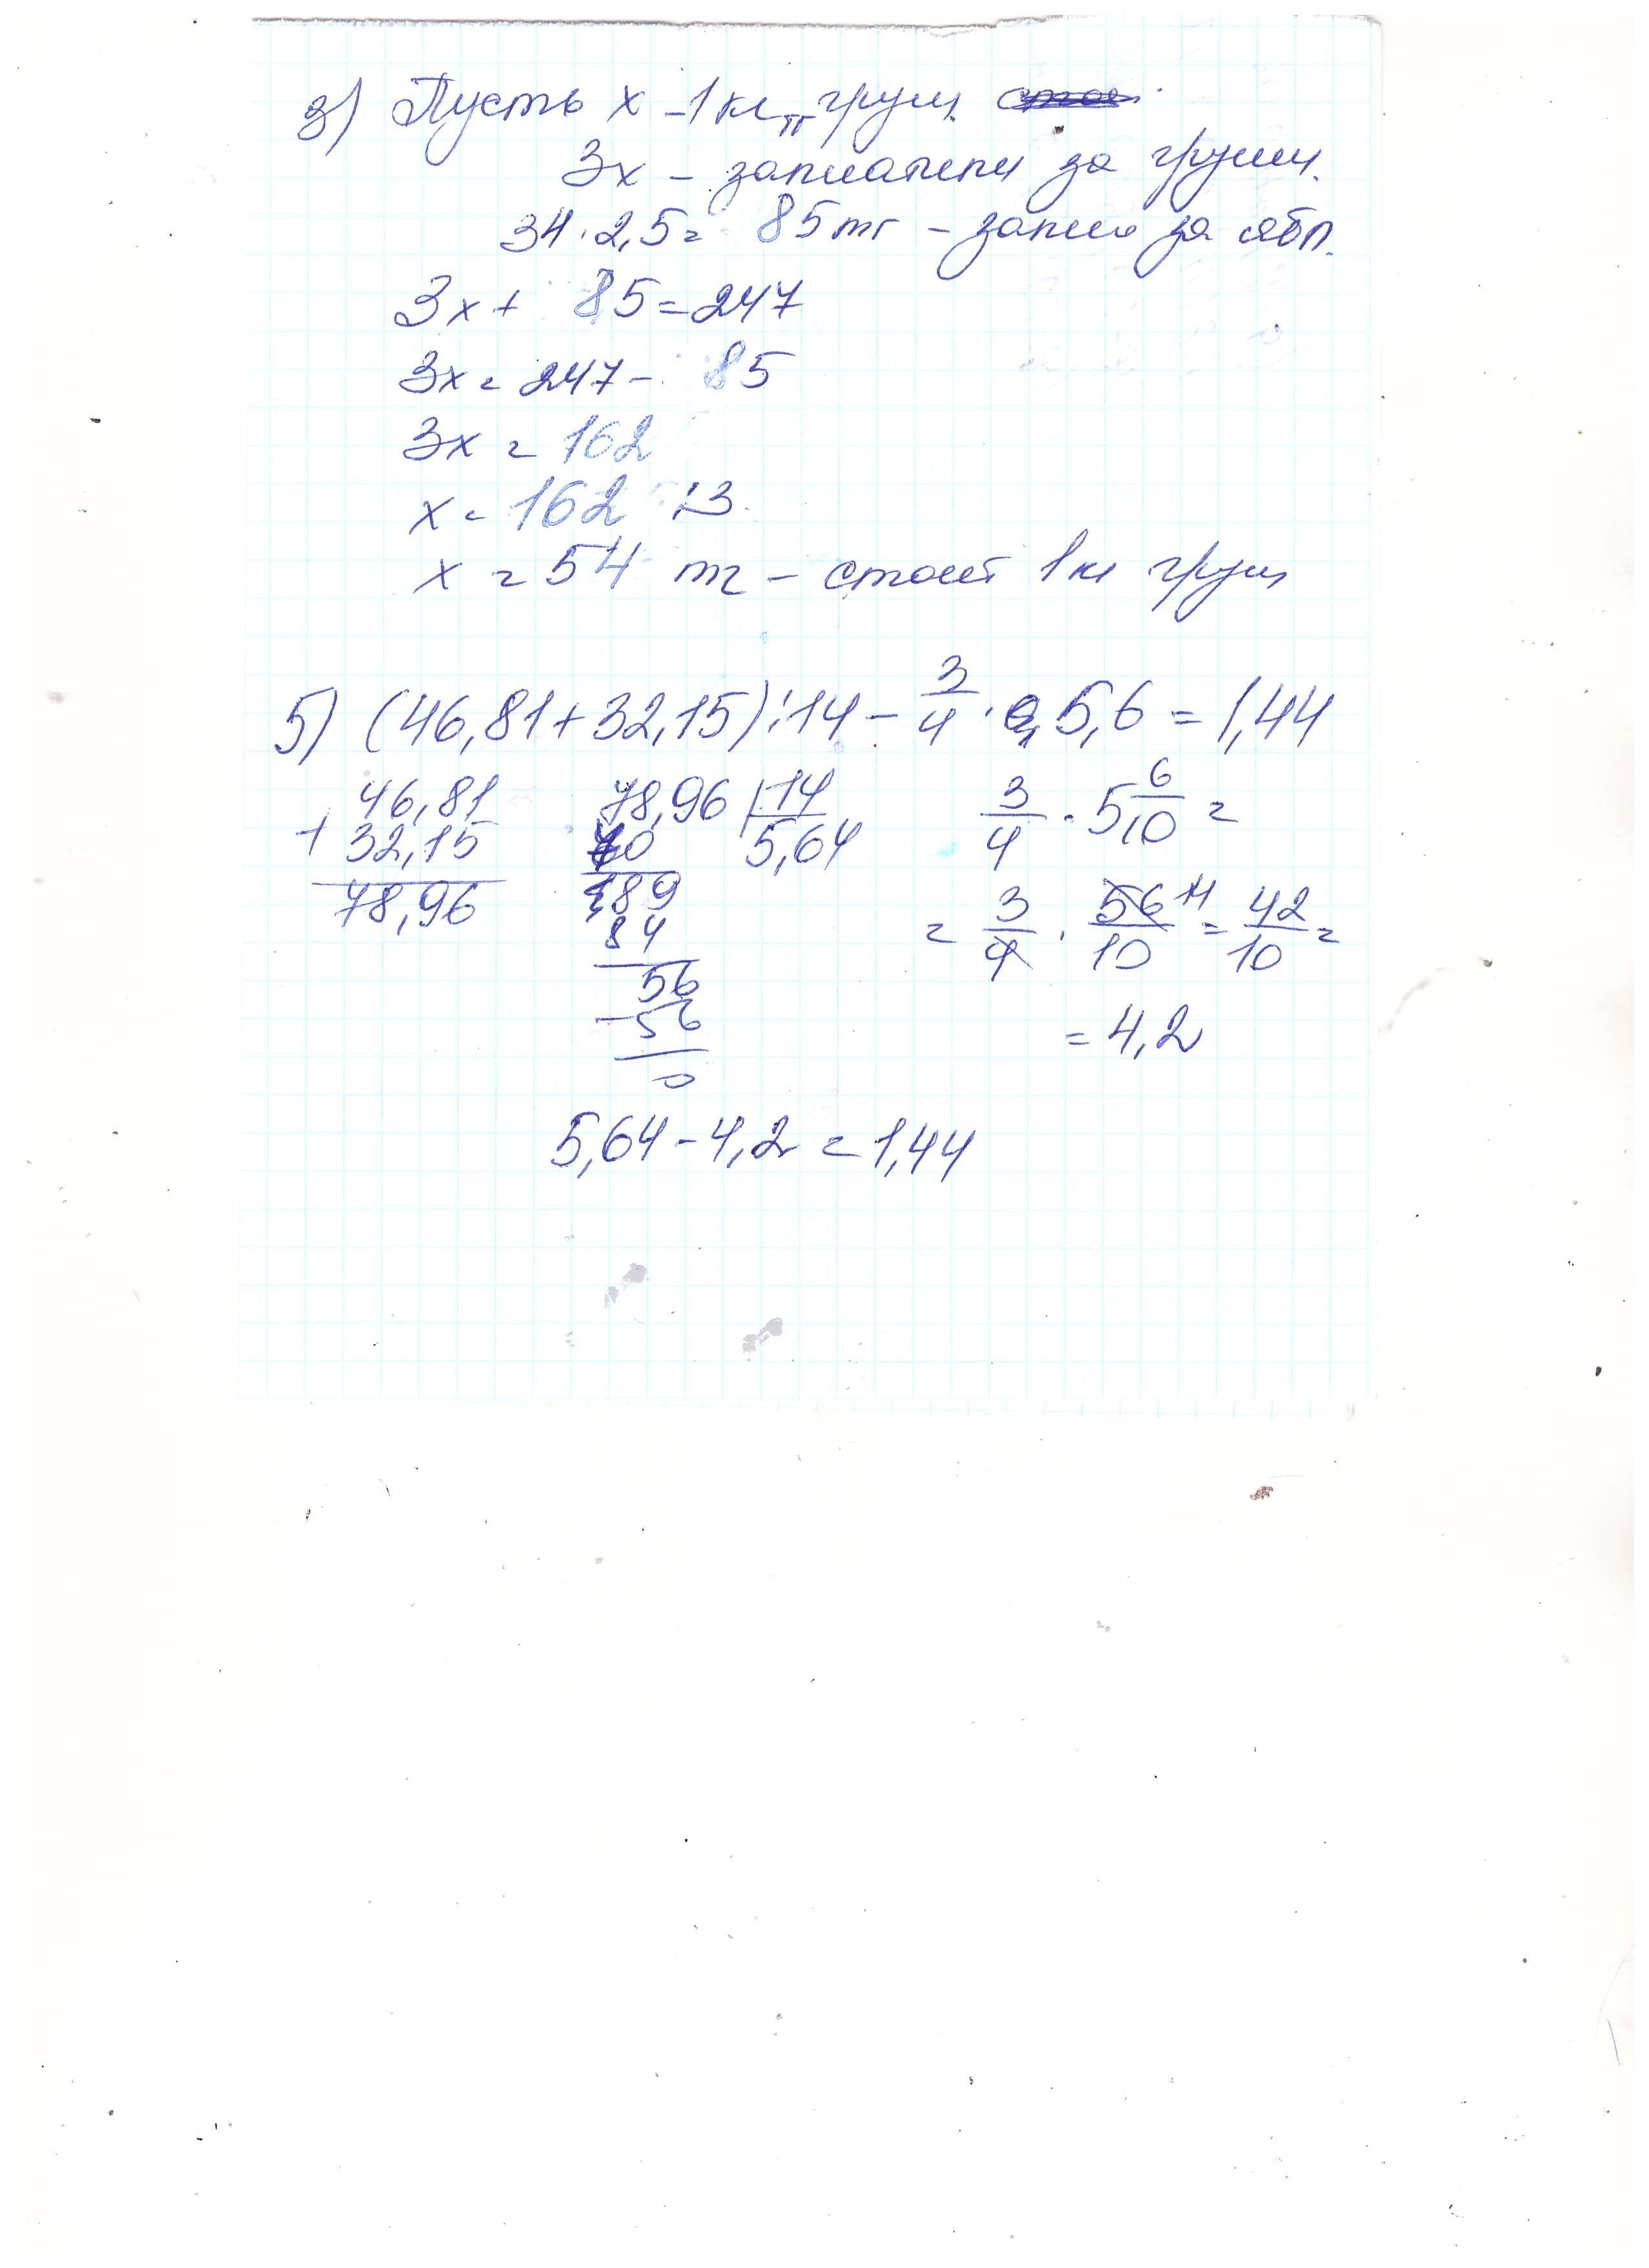 3) Пусть x - 1 кг груш
3x - заплатили за груши.
34 · 2,5 = 85 тг - запл за ябл.
3x + 85 = 247
3x = 247 - 85
3x = 162
x = 162 : 3
x = 54 тг - стоит 1 кг груш
5) (46,81 + 32,15) : 14 - 3/4 · 5,6 = 1,44
46,81
+ 32,15
78,96
78,96 | 14
70 5,64
89
84
56
- 56
0
3/4 · 5 6/10 =
= 3/4 · 56/10 14 = 42/10 =
= 4,2
5,64 - 4,2 = 1,44